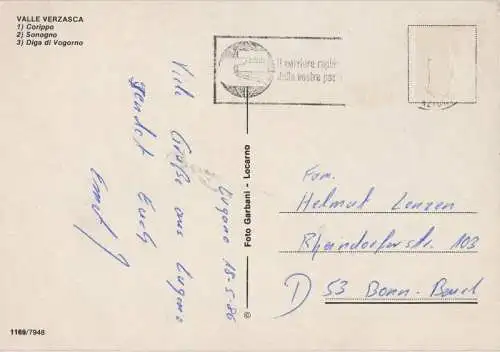 VALLE VERZASCA
1) Corippo
2) Sonogno
3) Diga di Vogorno
Il corriere rapido
della vostra pos
Lugano 18-5-86
Viele Grüße aus Lugano
sendet Euch
Foto Garbani - Locarno
©
Fam.
Helmut Lenzen
Rheindorferstr. 103
D 53 Bonn-Beuel
1169/7948